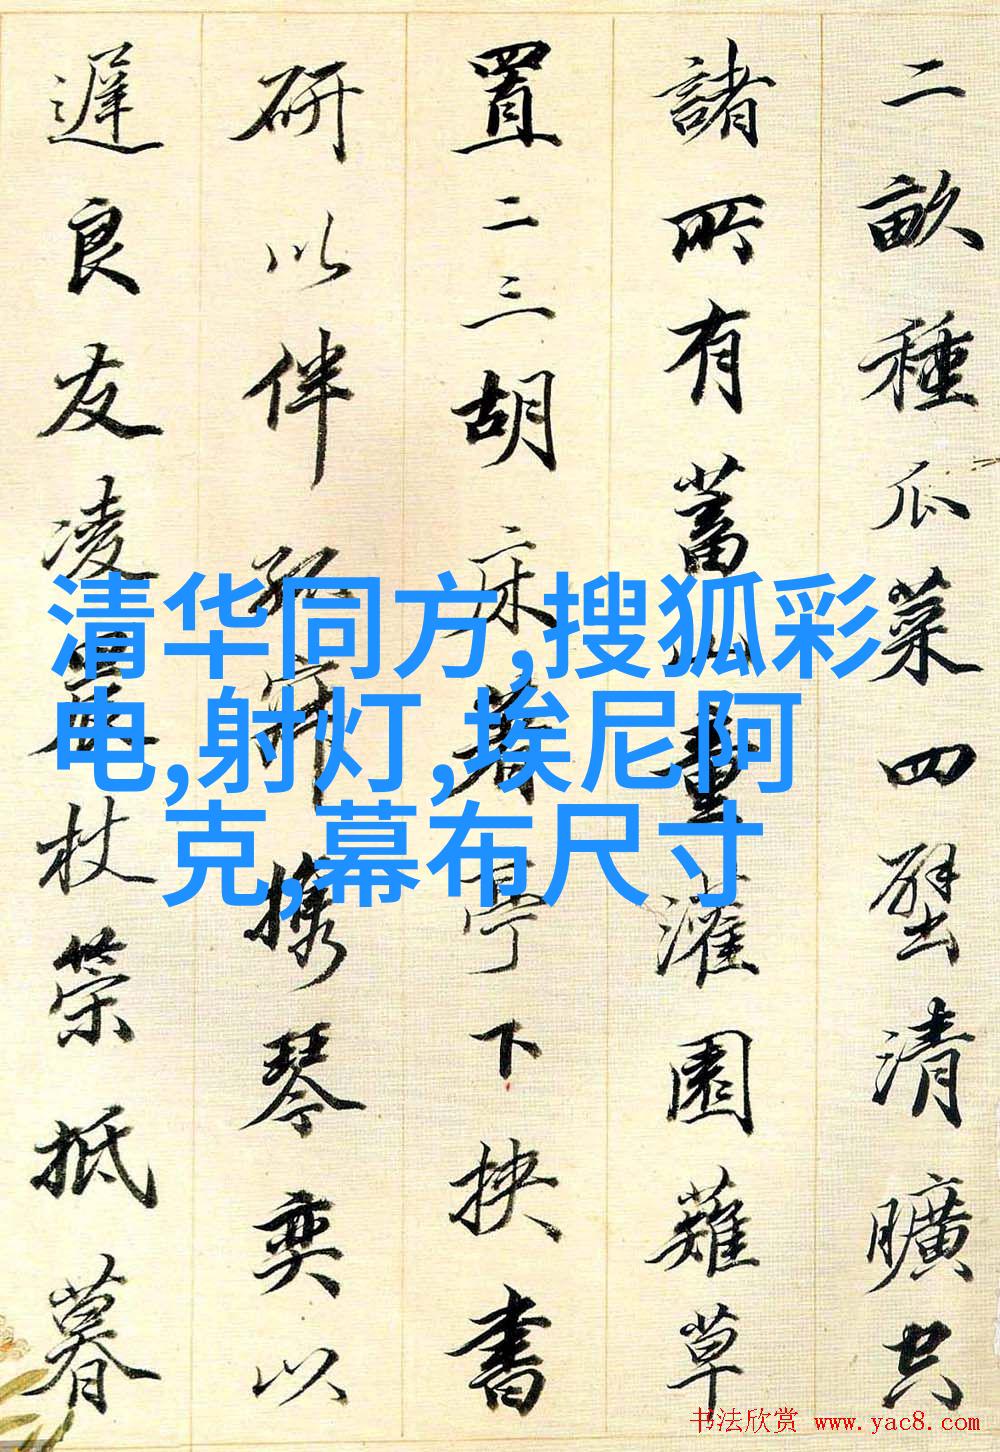 二畝種瓜菜四壁清曠空
諸所有蓄山童灌園薙草
置二三胡床着亭下挟書
研以伴孤寂攜琴奕以
遲良友凌晨杖策抵暮
清华同方,搜狐彩
电,射灯,埃尼阿
克,幕布尺寸
书法欣赏 www.yac8.com